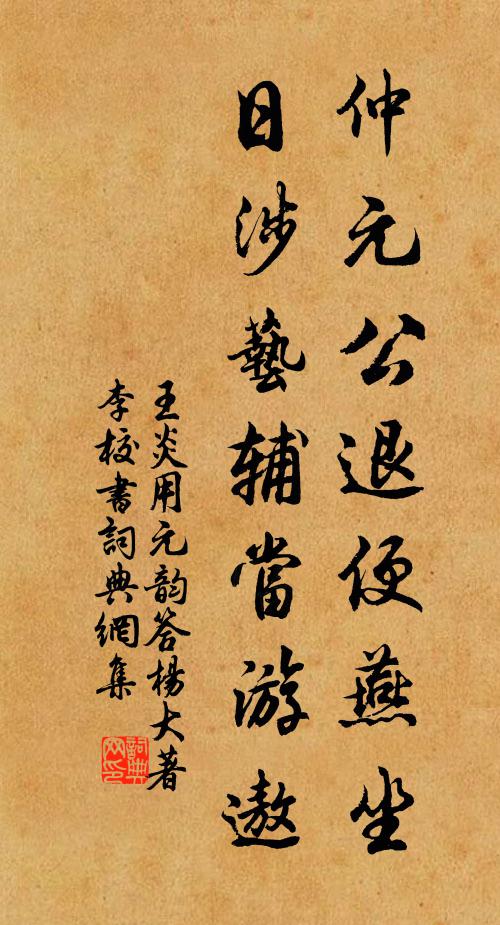 仲元公退便燕坐
日涉藝辅當游遨
王炎用元韵答楊大著
李校書詞典網集
詞典網印